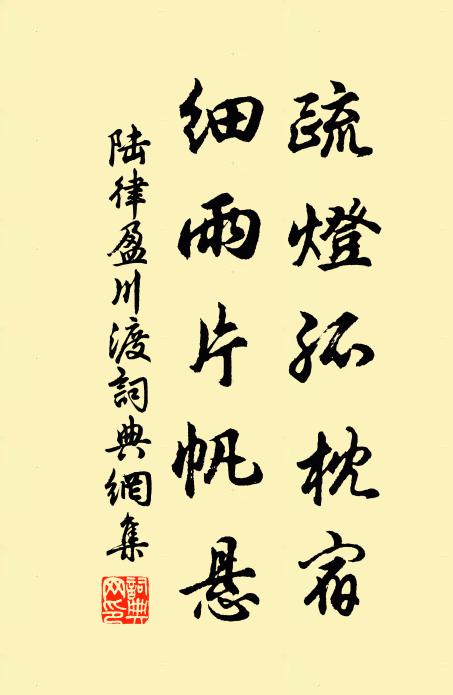 疏燈孤枕宿
細雨片帆懸
陆律盈川渡詞典網集
詞典网印